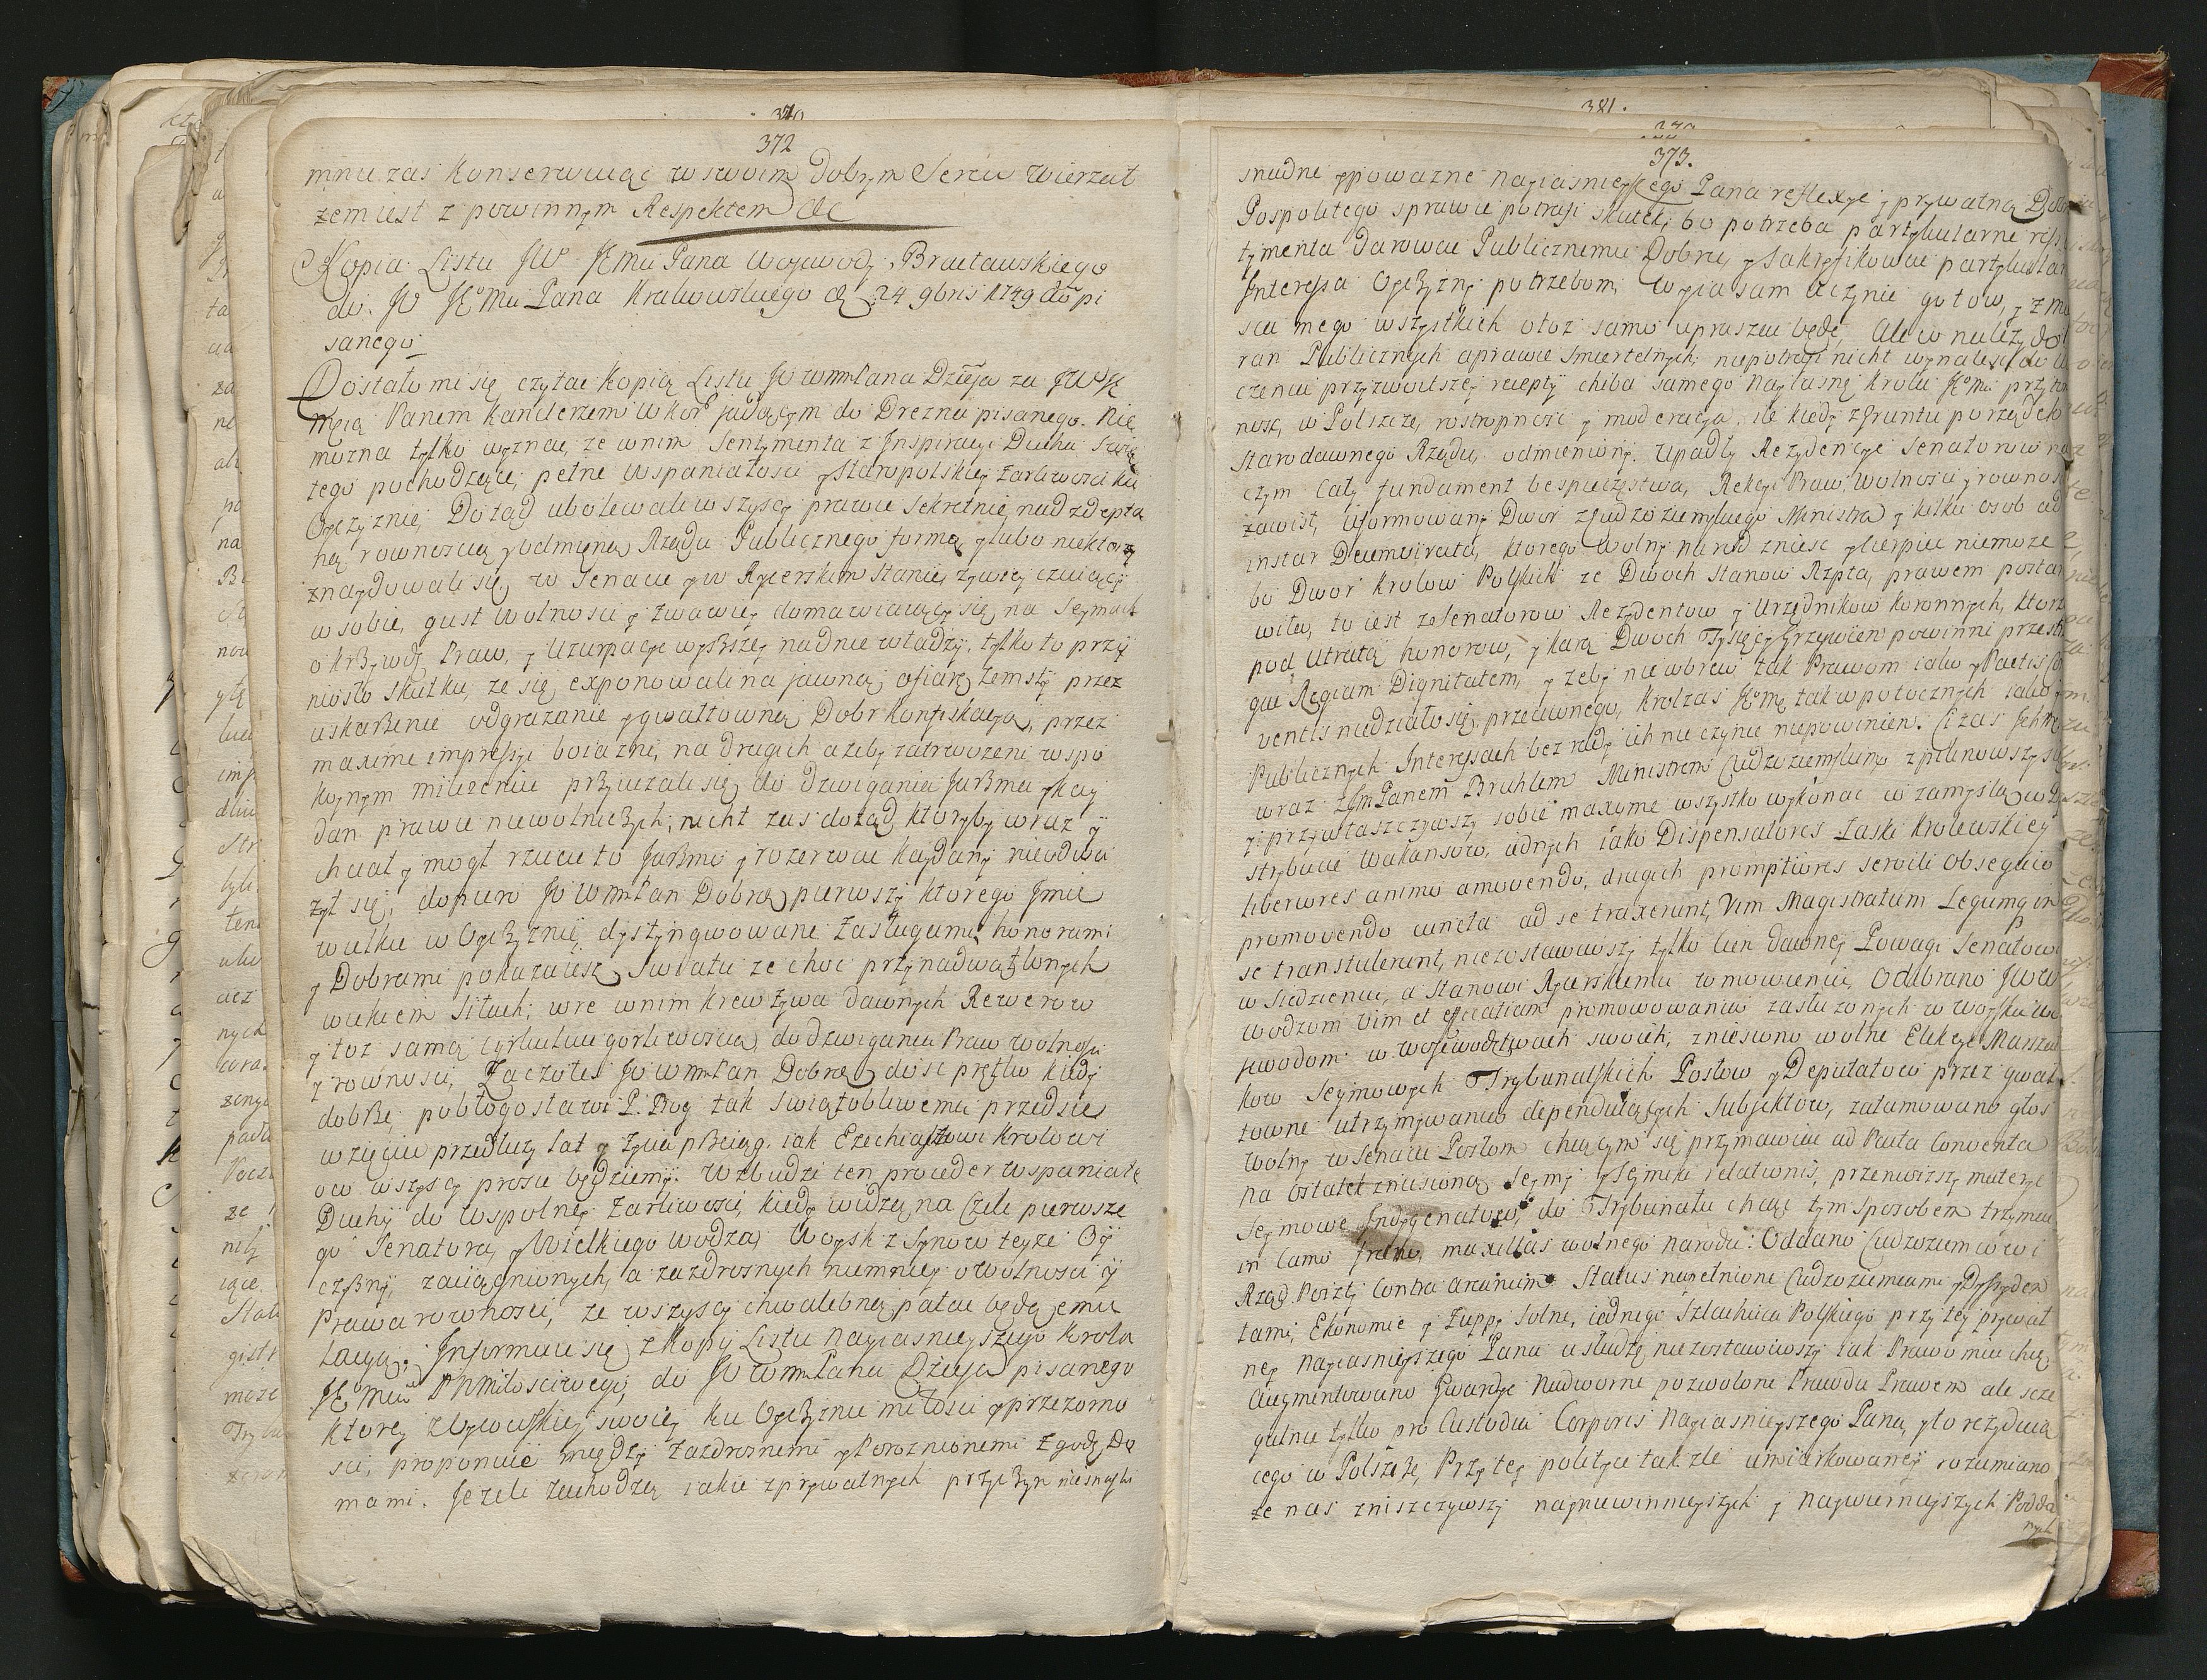 370
372
mnie zas konserwuiąc w swoim dobrym Sercu wierzał
żem iest z powinnym Respektem &c
Kopia Listu JW JEmci Pana Woiewody Bracławskiego
do JW JEmci Pana Krakowskiego d 24 9bris 1749 do pi
sanego
Dostało mi się czytac kopią Listu JW WmPana Dzieja za JW
Mcią Panem Kanclerzem W Kor jadącym do Drezna pisanego. Nie
mozna tylko wyznac, że w nim Sentymenta z Inspiracyi Ducha Swię
tego pochodzące, pełne wspaniałosci y staropolskiey żarliwosci ku
Oyczyznie, Dotąd ubolewali wszyscy prawie sekretnie nad zdepta
ną rownoscią y odmianą Rządu Publicznego formą, y lubo niektorzy
znaydowali się w Senacie y w Rycerskim Stanie, żywiey czuiący
w sobie, gust wolnosci y żwawiey domawiaiący się na Seymach
o krzywdę Praw, y Uzurpacye wyższey nad nie władzy, tylko to przy
niosło skutku, ze się exponowali na jawną ofiarę zemsty przez
uskarżenie odgrażanie y gwałtowną Dobr konfiskacyą, przez
maxime impressyi boiazni, na drugich ażeby zatrwożeni w spo
koynym milczeniu przyuczali się do dzwigania Jarzma y kay
dan prawie niewolniczych, nicht zas dotąd ktoryby wraz y
chciał y mogł rzucic to Jarzmo y rozerwac kaydany nieodwa
żył się, dopiero JW WmPan Dobrą pierwszy ktorego Jmie
wielkie w Oyczyznie, dystyngwowane Zasługami honorami
y Dobrami pokazuiesz Swiatu ze choc przy nadwątlonych
wiekiem Siłach, wre w nim krew żywa dawnych Rewerow
y toż samą cyrkuluie gorliwoscią, do dzwigania Praw wolnosci
y rownosci, Zacząłes JW WmPan Dobrą dosc prętko kiedy
dobrze, pobłogosławi P. Bog tak swiątobliwemu przedsię
wzięciu przedłuzy lat y życia przeciąg, iak Ezechiaszowi Krolowi
o co wszyscy prosic będziemy. Wzbudzi ten proceder wspaniałe
Duchy do wspolney żarliwosci, kiedy widzą na Czele pierwsze
go Senatora, y Wielkiego Wodza, Woysk z Synow teyże Oy
czyzny, zaciągnionych, a zazdrosnych niemniey o wolnosci y
Prawa rownosci, że wszyscy chwalebną pałac będą emu
lacyą. Informuie się z kopij Listu Nayiasnieyszego Krola
JEmci PNMiłosciwego, do JW WmPana Dzieja pisanego
ktorey z Oycowskiey swoiey ku Oyczyznie miłosci y przezorno
sci, proponuie między Zazdrosnemi y Poroznionemi zgodę Do
mami. Jezeli zachodzą iakie z prywatnych przyczyn niesnaski
381.
373.
snadne y powazne Nayiasnieyszego Pana reflexye y prywatną Dobr
Pospolitego sprawie potrafi skutek, bo potrzeba partykularne res
tymenta darowac Publicznemu Dobru, y sakryfikowac partykular
Interessa Oyczyzny potrzebom, w ia sam uczynic gotow, y z m
sca mego wszystkich otoż samo upraszac będę, Ale w należydo
ran Publicznych a prawie smiertelnych niepotrafi nicht wynalesc do le
czenia przyzwoitszey recepty chiba samego Nayiasnę Krola JEmci przyto
nosc, w Polszcze, rostropnosc y moderacya, ile kiedy z gruntu porządek
Starodawnego Rządu, odmieniony. Upadły Rezydencye Senatorow na
czym Cały fundament bespieczęstwa, Rekcyi Praw, Wolnosci y rownos
zawisł, Uformowany Dwor z Cudzoziemskiego Ministra y kilku osob ad
instar Duumvirata, ktorego wolny narod zniesc y cierpiec niemoze
bo Dwor Krolow Polskich ze Dwoch Stanow Rzpta, prawem postan
wiła, to iest ze Senatorow Rezydentow y Urzędnikow Koronnych, ktorz
pod Utratą honorow, y karą Dwoch Tysięcy Grzywien powinni przestr
gac Regiam Dignitatem, y żeby nie wbrew tak Prawom iako y Pactis Co
ventis niedziało się przeciwnego, Krolzas JEmc tak w potocznych iako y
Publicznych Interessach bez rady ich nic czynic niepowinien. Ci zas Ichm
wraz z Jm Panem Bruhlem Ministrem Cudzoziemskim z pilnowszy s
y przywłaszczywszy sobie maxyme wszystko wykonac w zamyslą w Dy
strybucie wakansow, iednych iako Dispensatores Łaski Krolewskiey
liberiores animo amovendo, drugich promptiores servili obsequio
promovendo cuncta ad se traxerunt, Vim Magistratum Legumq in
se transtulerunt, niezostawiwszy tylko cien dawney Powagi Senatow
w Siedzeniu, a Stanowi Rycerskiemu w mowieniu, Odebrano JW
Wodzom Vim et efficatiam promowowania zasłużonych w Woysku
jewodom w Wojewodztwach swoich, zniesiono wolne Elekcye Marszał
kow Seymowych Trybunalskich Posłow y Deputatow przez gwał
towne utrzymywanie dependuiących Subjektow, zatamowano głos
Wolny w Senacie Posłom chcącym się przymawiac ad Pacta Conventa
na ostatek zniesiono, Seymy y Seymiki relationis, przeniosszy materye
Seymowe Indygenatow, do Trybunału chcąc tym sposobem trzymac
in Camo maxillas wolnego narodu. Oddano Cudzoziemcowi
Rząd Poczty Contra arcanum Status napełnione Cudzoziemcami y Dyssyden
tami, Ekonomie y Zuppy Solne, iednego Szlachcica Polskiego przy tey prywat
ney Nayiasnieyszego Pana usłudze niezostawiwszy iak Prawo mieć chce
Augmentowano Gwardye Nadworne pozwolone Prawda Prawem ale scze
gulnie tylko pro Custodia Corporis Nayiasnieyszego Pana, y to rezyduią
cego w Polszcze, Przy tey polityce tak zle umiarkowaney rozumiano
że nas zniszczywszy nayniewinnieyszych y naywiernieyszych Podda
nych